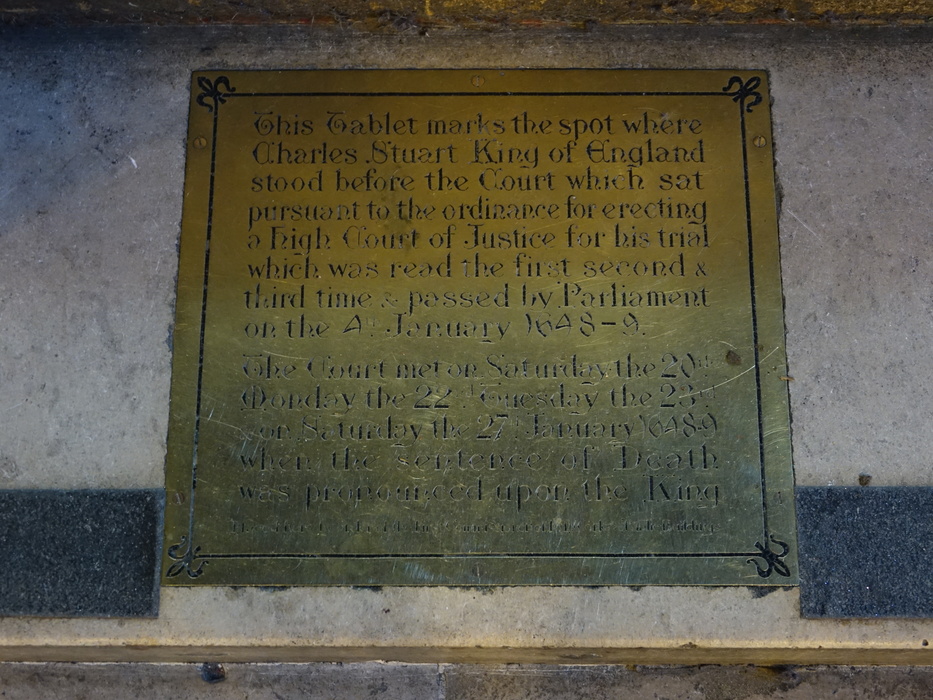 This Tablet marks the spot where
Charles Stuart King of England
stood before the Court which sat
pursuant to the ordinance for erecting
a High Court of Justice for his trial
which was read the first second &
third time & passed by Parliament
on the 4th January 1648-9.
The Court met on Saturday the 20th
Monday the 22nd Tuesday the 23rd
& on Saturday the 27th January 1648-9
when the sentence of Death
was pronounced upon the King